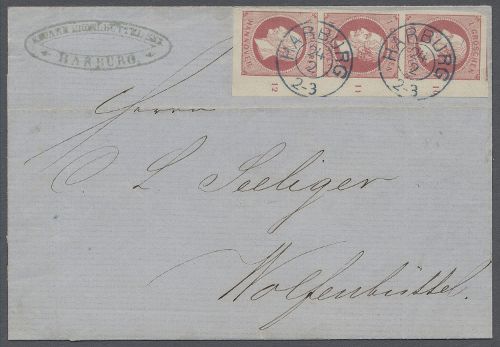 HARBURG.
HANNOVER
1 GROSCHEN
HARBURG
2-3
HARBURG
2-3
12
11
10
Herrn
C. L. Seeliger
Wolfenbüttel.